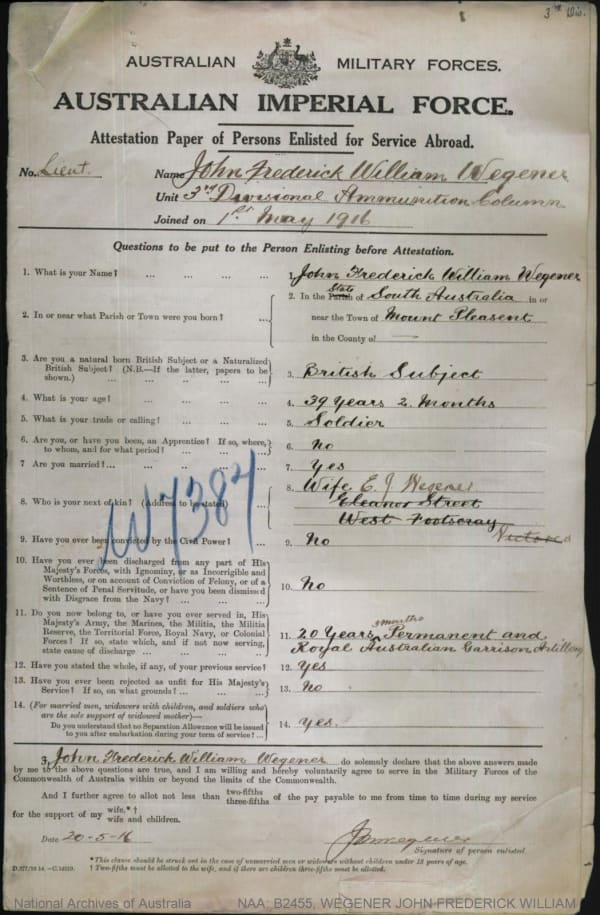 3rd Div.
AUSTRALIAN MILITARY FORCES.
AUSTRALIAN IMPERIAL FORCE.
Attestation Paper of Persons Enlisted for Service Abroad.
No. Lieut. Name John Frederick William Wegener
Unit 3rd Divisional Ammunition Column
Joined on 1st May 1916
Questions to be put to the Person Enlisting before Attestation.
1. What is your Name? ... ... ... ... 1. John Frederick William Wegener
2. In or near what Parish or Town were you born? ...
2. In the Parish State of South Australia in or
near the Town of Mount Pleasent
in the County of —
3. Are you a natural born British Subject or a Naturalized
British Subject? (N.B.—If the latter, papers to be
shown.) ... ... ... ...
3. British Subject
4. What is your age? ... ... ... ... 4. 39 Years 2 Months
5. What is your trade or calling? ... ... ... 5. Soldier
6. Are you, or have you been, an Apprentice? If so, where,
to whom, and for what period? ... ... ...
6. No
7 Are you married? ... ... ... ... 7. Yes
8. Who is your next of kin? (Address to be stated) ...
8. Wife E. J Wegener
Eleanor Street
West Footscray
Victoria
W7384
9. Have you ever been convicted by the Civil Power? ... 9. No
10. Have you ever been discharged from any part of His
Majesty's Forces, with Ignominy, or as Incorrigible and
Worthless, or on account of Conviction of Felony, or of a
Sentence of Penal Servitude, or have you been dismissed
with Disgrace from the Navy? ... ... ...
10. No
11. Do you now belong to, or have you ever served in, His
Majesty's Army, the Marines, the Militia, the Militia
Reserve, the Territorial Force, Royal Navy, or Colonial
Forces? If so, state which, and if not now serving,
state cause of discharge ... ... ...
months
11. 20 Years Permanent and
Royal Australian Garrison Artillery
12. Have you stated the whole, if any, of your previous service? 12. Yes
13. Have you ever been rejected as unfit for His Majesty's
Service? If so, on what grounds? ... ... ...
13. No
14. (For married men, widowers with children, and soldiers who
are the sole support of widowed mother)—
Do you understand that no Separation Allowance will be issued
to you after embarkation during your term of service? ...
14. Yes.
I, John Frederick William Wegener do solemnly declare that the above answers made
by me to the above questions are true, and I am willing and hereby voluntarily agree to serve in the Military Forces of the
Commonwealth of Australia within or beyond the limits of the Commonwealth.
And I further agree to allot not less than two-fifths three-fifths of the pay payable to me from time to time during my service
for the support of my wife.*† wife and children.
Date 20-5-16
JFWWegener
Signature of person enlisted.
* This clause should be struck out in the case of unmarried men or widowers without children under 18 years of age.
† Two-fifths must be allotted to the wife, and if there are children three-fifths must be allotted.
National Archives of Australia NAA: B2455, WEGENER JOHN FREDERICK WILLIAM